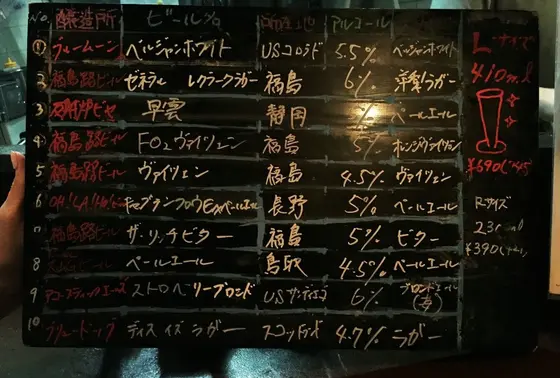 No. 醸造所 ビール名 所在地 アルコール
① ブルームーン ベルジャンホワイト USコロラド 5.5% ベルジャンホワイト
2 福島路ビール ゼネラル レクラークラガー 福島 6% 洋梨ラガー
3 早雲 静岡 % ペールエール
4 福島路ビール ヴァイツェン 福島 5% ヴァイツェン
5 福島路ビール ヴァイツェン 福島 4.5% ヴァイツェン
6 長野 5% ペールエール
7 福島路ビール ザ・リッチビター 福島 5% ビター
8 ビール ペールエール 鳥取 4.5% ペールエール
9 エールズ ストロベリーブロンド USサンディエゴ 6% ブロンドエール
10 ブリュードッグ ディス イズ ラガー スコットランド 4.7% ラガー
Lサイズ
410ml
¥690
Rサイズ
¥390